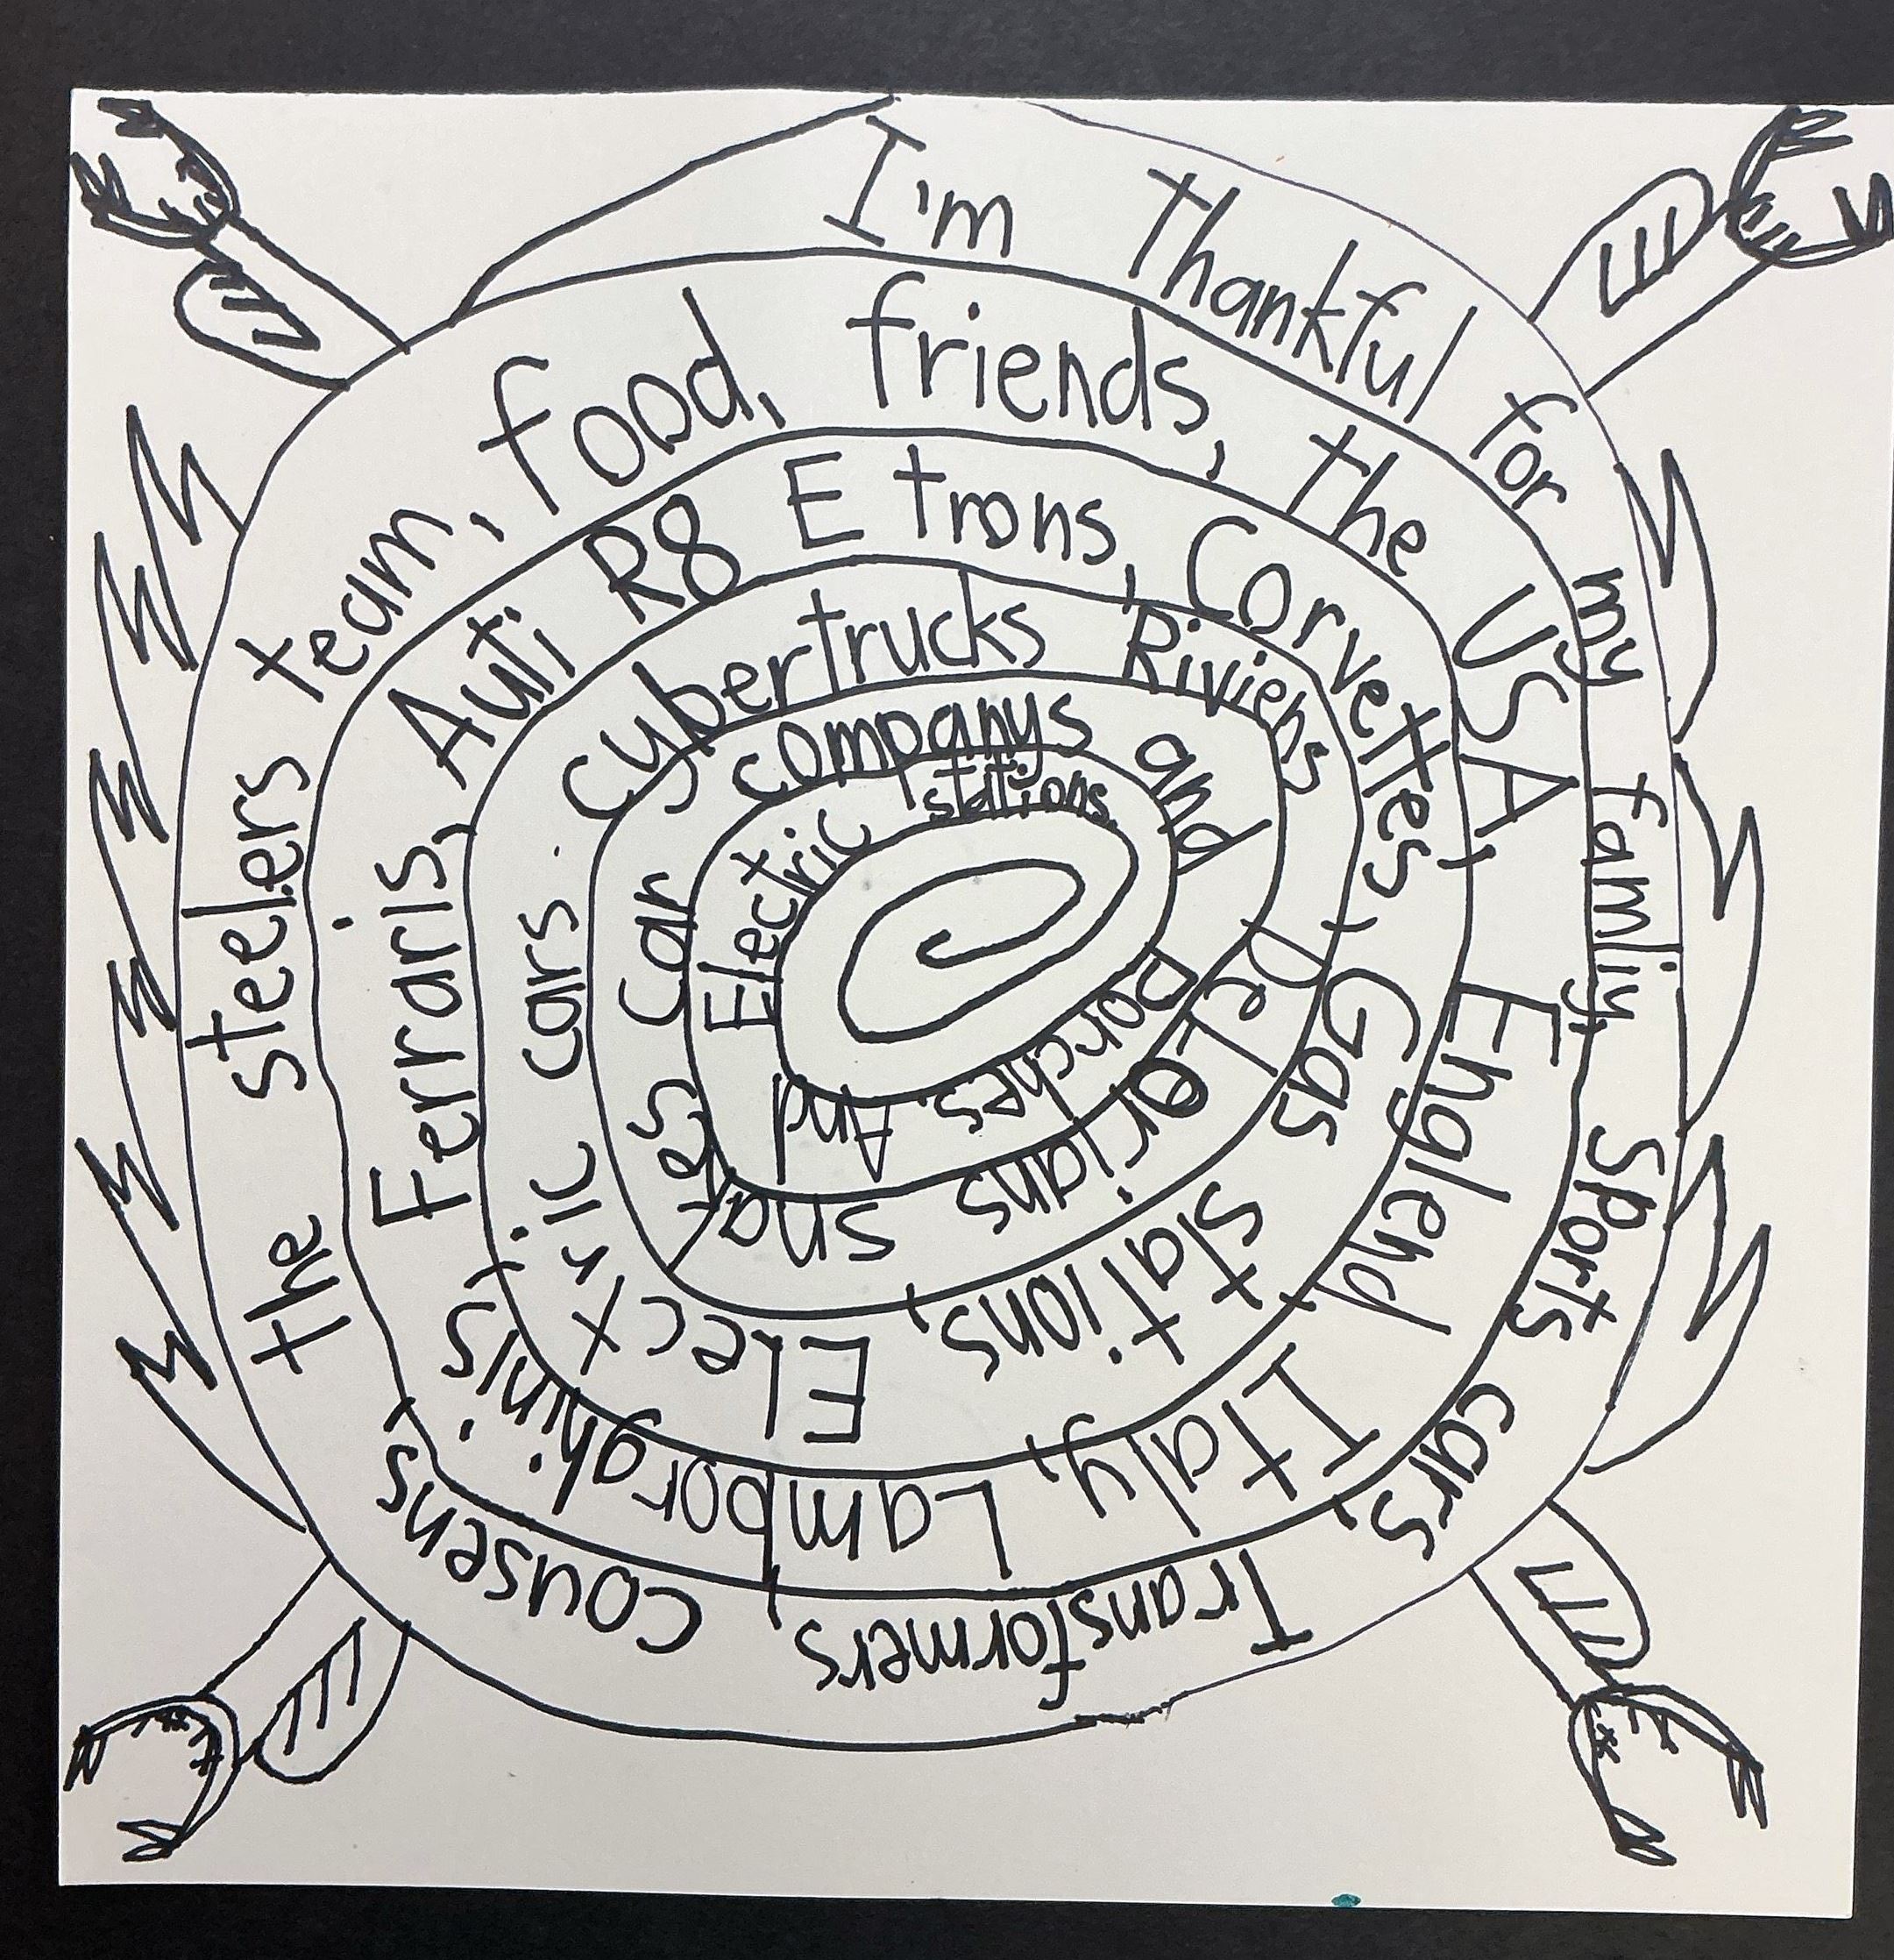 I'm Thankful for my famliy, Sports cars, Transformers, cousens, the steelers team, food, friends, the USA, Englend, Italy, Lamborghinis, Ferraris, Auti R8 E trons, Corvettes, Gas stations, Electric cars. cybertrucks Riviens Delorians snates car companys and porches. And Electric stations.